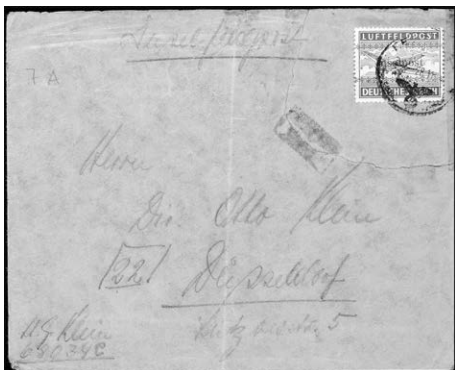 Inselfeldpost
LUFTFELDPOST
DEUTSCHES REICH
7A
Herrn
Dir. Otto Klein
22
Düsseldorf
5
Klein
68034C